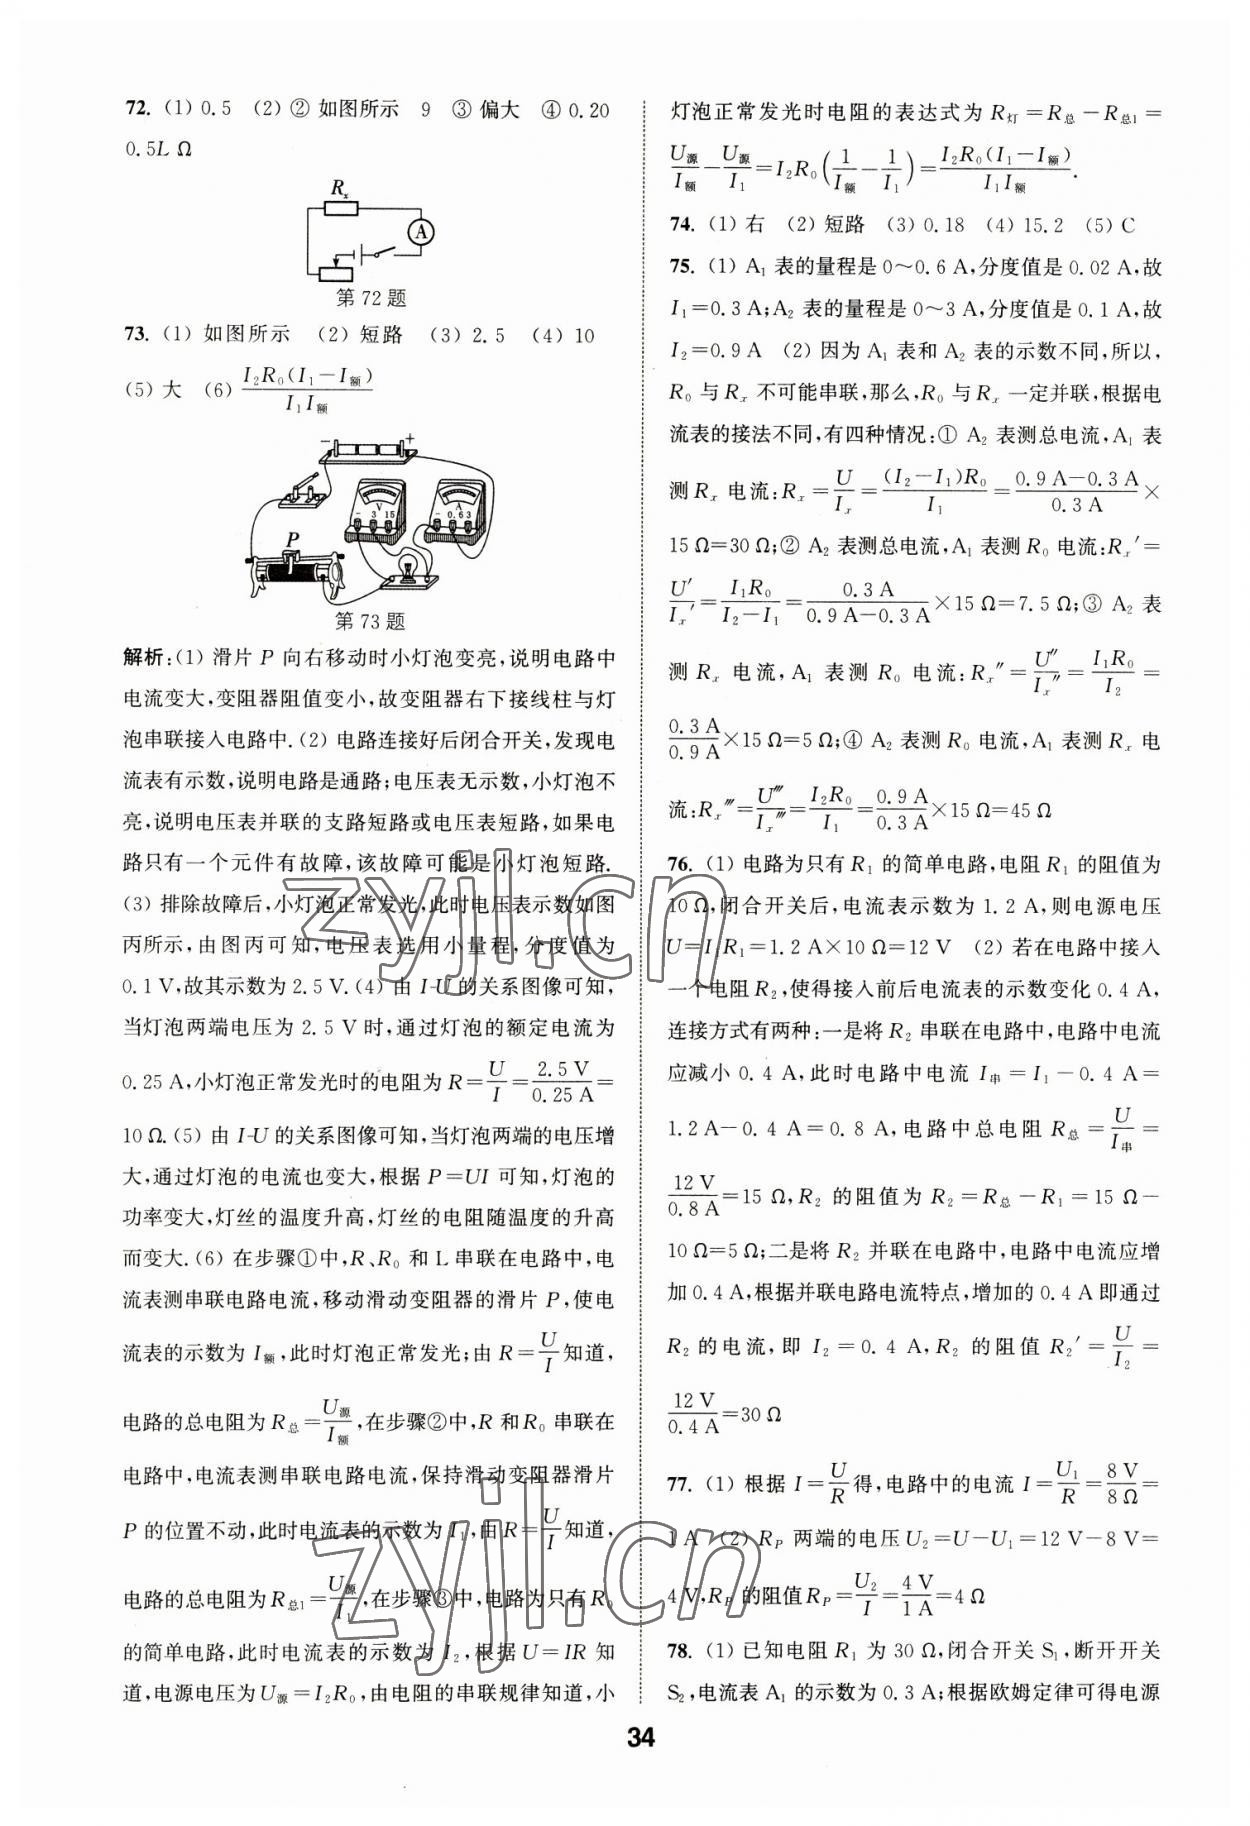 72. (1) 0.5 (2) ② 如图所示 9 ③ 偏大 ④ 0.20
0.5L Ω
Rₓ
A
第 72 题
73. (1) 如图所示 (2) 短路 (3) 2.5 (4) 10
(5) 大 (6) I₂R₀(I₁－I额)/I₁I额
－ ＋
V
－ 3 15
A
－ 0.6 3
P
第 73 题
解析:(1) 滑片 P 向右移动时小灯泡变亮,说明电路中
电流变大,变阻器阻值变小,故变阻器右下接线柱与灯
泡串联接入电路中.(2) 电路连接好后闭合开关,发现电
流表有示数,说明电路是通路;电压表无示数,小灯泡不
亮,说明电压表并联的支路短路或电压表短路,如果电
路只有一个元件有故障,该故障可能是小灯泡短路.
(3) 排除故障后,小灯泡正常发光,此时电压表示数如图
丙所示,由图丙可知,电压表选用小量程,分度值为
0.1 V,故其示数为 2.5 V.(4) 由 I-U 的关系图像可知,
当灯泡两端电压为 2.5 V 时,通过灯泡的额定电流为
0.25 A,小灯泡正常发光时的电阻为 R＝U/I＝2.5 V/0.25 A＝
10 Ω.(5) 由 I-U 的关系图像可知,当灯泡两端的电压增
大,通过灯泡的电流也变大,根据 P＝UI 可知,灯泡的
功率变大,灯丝的温度升高,灯丝的电阻随温度的升高
而变大.(6) 在步骤①中,R、R₀ 和 L 串联在电路中,电
流表测串联电路电流,移动滑动变阻器的滑片 P,使电
流表的示数为 I额,此时灯泡正常发光;由 R＝U/I知道,
电路的总电阻为 R总＝U源/I额,在步骤②中,R 和 R₀ 串联在
电路中,电流表测串联电路电流,保持滑动变阻器滑片
P 的位置不动,此时电流表的示数为 I₁,由 R＝U/I知道,
电路的总电阻为 R总1＝U源/I₁,在步骤③中,电路为只有 R₀
的简单电路,此时电流表的示数为 I₂,根据 U＝IR 知
道,电源电压为 U源＝I₂R₀,由电阻的串联规律知道,小
灯泡正常发光时电阻的表达式为 R灯＝R总－R总1＝
U源/I额－U源/I₁＝I₂R₀(1/I额－1/I₁)＝I₂R₀(I₁－I额)/I₁I额.
74. (1) 右 (2) 短路 (3) 0.18 (4) 15.2 (5) C
75. (1) A₁ 表的量程是 0～0.6 A,分度值是 0.02 A,故
I₁＝0.3 A;A₂ 表的量程是 0～3 A,分度值是 0.1 A,故
I₂＝0.9 A (2) 因为 A₁ 表和 A₂ 表的示数不同,所以,
R₀ 与 Rₓ 不可能串联,那么,R₀ 与 Rₓ 一定并联,根据电
流表的接法不同,有四种情况:① A₂ 表测总电流,A₁ 表
测 Rₓ 电流:Rₓ＝U/Iₓ＝(I₂－I₁)R₀/I₁＝0.9 A－0.3 A/0.3 A×
15 Ω＝30 Ω;② A₂ 表测总电流,A₁ 表测 R₀ 电流:Rₓ′＝
U′/Iₓ′＝I₁R₀/I₂－I₁＝0.3 A/0.9 A－0.3 A×15 Ω＝7.5 Ω;③ A₂ 表
测 Rₓ 电流,A₁ 表测 R₀ 电流:Rₓ″＝U″/Iₓ″＝I₁R₀/I₂＝
0.3 A/0.9 A×15 Ω＝5 Ω;④ A₂ 表测 R₀ 电流,A₁ 表测 Rₓ 电
流:Rₓ‴＝U‴/Iₓ‴＝I₂R₀/I₁＝0.9 A/0.3 A×15 Ω＝45 Ω
76. (1) 电路为只有 R₁ 的简单电路,电阻 R₁ 的阻值为
10 Ω,闭合开关后,电流表示数为 1.2 A,则电源电压
U＝I₁R₁＝1.2 A×10 Ω＝12 V (2) 若在电路中接入
一个电阻 R₂,使得接入前后电流表的示数变化 0.4 A,
连接方式有两种:一是将 R₂ 串联在电路中,电路中电流
应减小 0.4 A,此时电路中电流 I串＝I₁－0.4 A＝
1.2 A－0.4 A＝0.8 A,电路中总电阻 R总＝U/I串＝
12 V/0.8 A＝15 Ω,R₂ 的阻值为 R₂＝R总－R₁＝15 Ω－
10 Ω＝5 Ω;二是将 R₂ 并联在电路中,电路中电流应增
加 0.4 A,根据并联电路电流特点,增加的 0.4 A 即通过
R₂ 的电流,即 I₂＝0.4 A,R₂ 的阻值 R₂′＝U/I₂＝
12 V/0.4 A＝30 Ω
77. (1) 根据 I＝U/R得,电路中的电流 I＝U₁/R＝8 V/8 Ω＝
1 A (2) R_P 两端的电压 U₂＝U－U₁＝12 V－8 V＝
4 V,R_P 的阻值 R_P＝U₂/I＝4 V/1 A＝4 Ω
78. (1) 已知电阻 R₁ 为 30 Ω,闭合开关 S₁,断开开关
S₂,电流表 A₁ 的示数为 0.3 A;根据欧姆定律可得电源
34
zyjl.cn
zyjl.cn